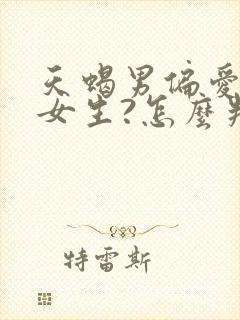 天蝎男偏爱
女生?怎麽判
特雷斯